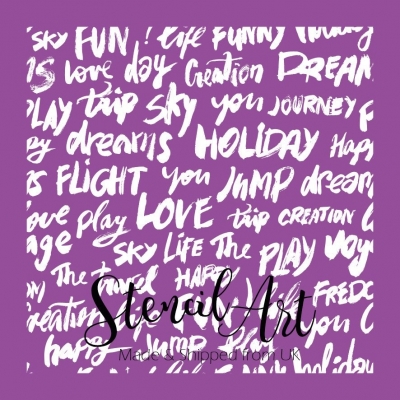 SKY FUN! life FUNNY
love day Creation DREAM
PLAY trip SKY you JOURNEY
dreams HOLIDAY Happ
FLIGHT you JUMP dream
ove play LOVE trip CREATION
age SKY LIFE The PLAY Voy
The travel HAPPY FREDO
reation life you
happy JUMP Play
FUNNY holiday
Stencil Art
Made & Shipped from UK